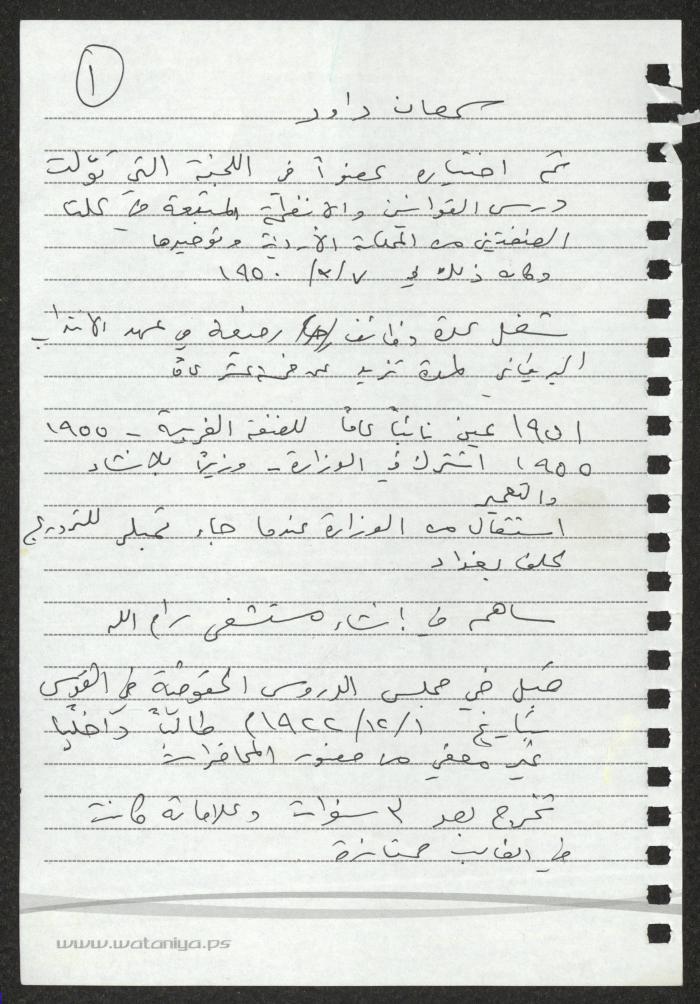 ١
سمعان داود
تم اختياره عضواً في اللجنة التي تولّت
درس القوانين والأنظمة المتبعة في كلتا
الضفتين من المملكة الأردنية وتوحيدها
وكان ذلك في ٧/٣/١٩٥٠
شغل عدة وظائف رفيعة في عهد الانتداب
البريطاني لمدة تزيد عن خمسة عشر عاماً
١٩٥١ عين نائباً عاماً للضفة الغربية - ١٩٥٥
١٩٥٥ اشترك في الوزارة - وزيراً للإنشاء
والتعمير
استقال من الوزارة عندما جاء تمبلر للترويج
لحلف بغداد
ساهم في إنشاء مستشفى رام الله
قبل في مجلس الدروس الحقوقية في القدس
بتاريخ ١/١٢/١٩٢٢ طالباً داخلياً
غير معفي من حضور المحاضرات
تخرج بعد ٣ سنوات وعلاماته كانت
في الغالب ممتازة
www.wataniya.ps